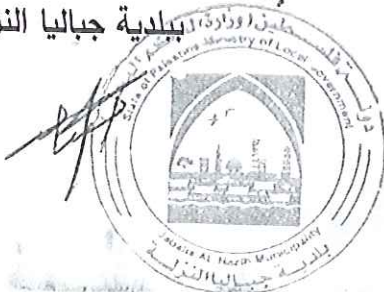 ببلدية جباليا النز
دولة فلسطين / وزارة الحكم
State of Palestine Ministry of Local Government
Jabalia AL Nazla Municipality
بلدية جباليا النزلة